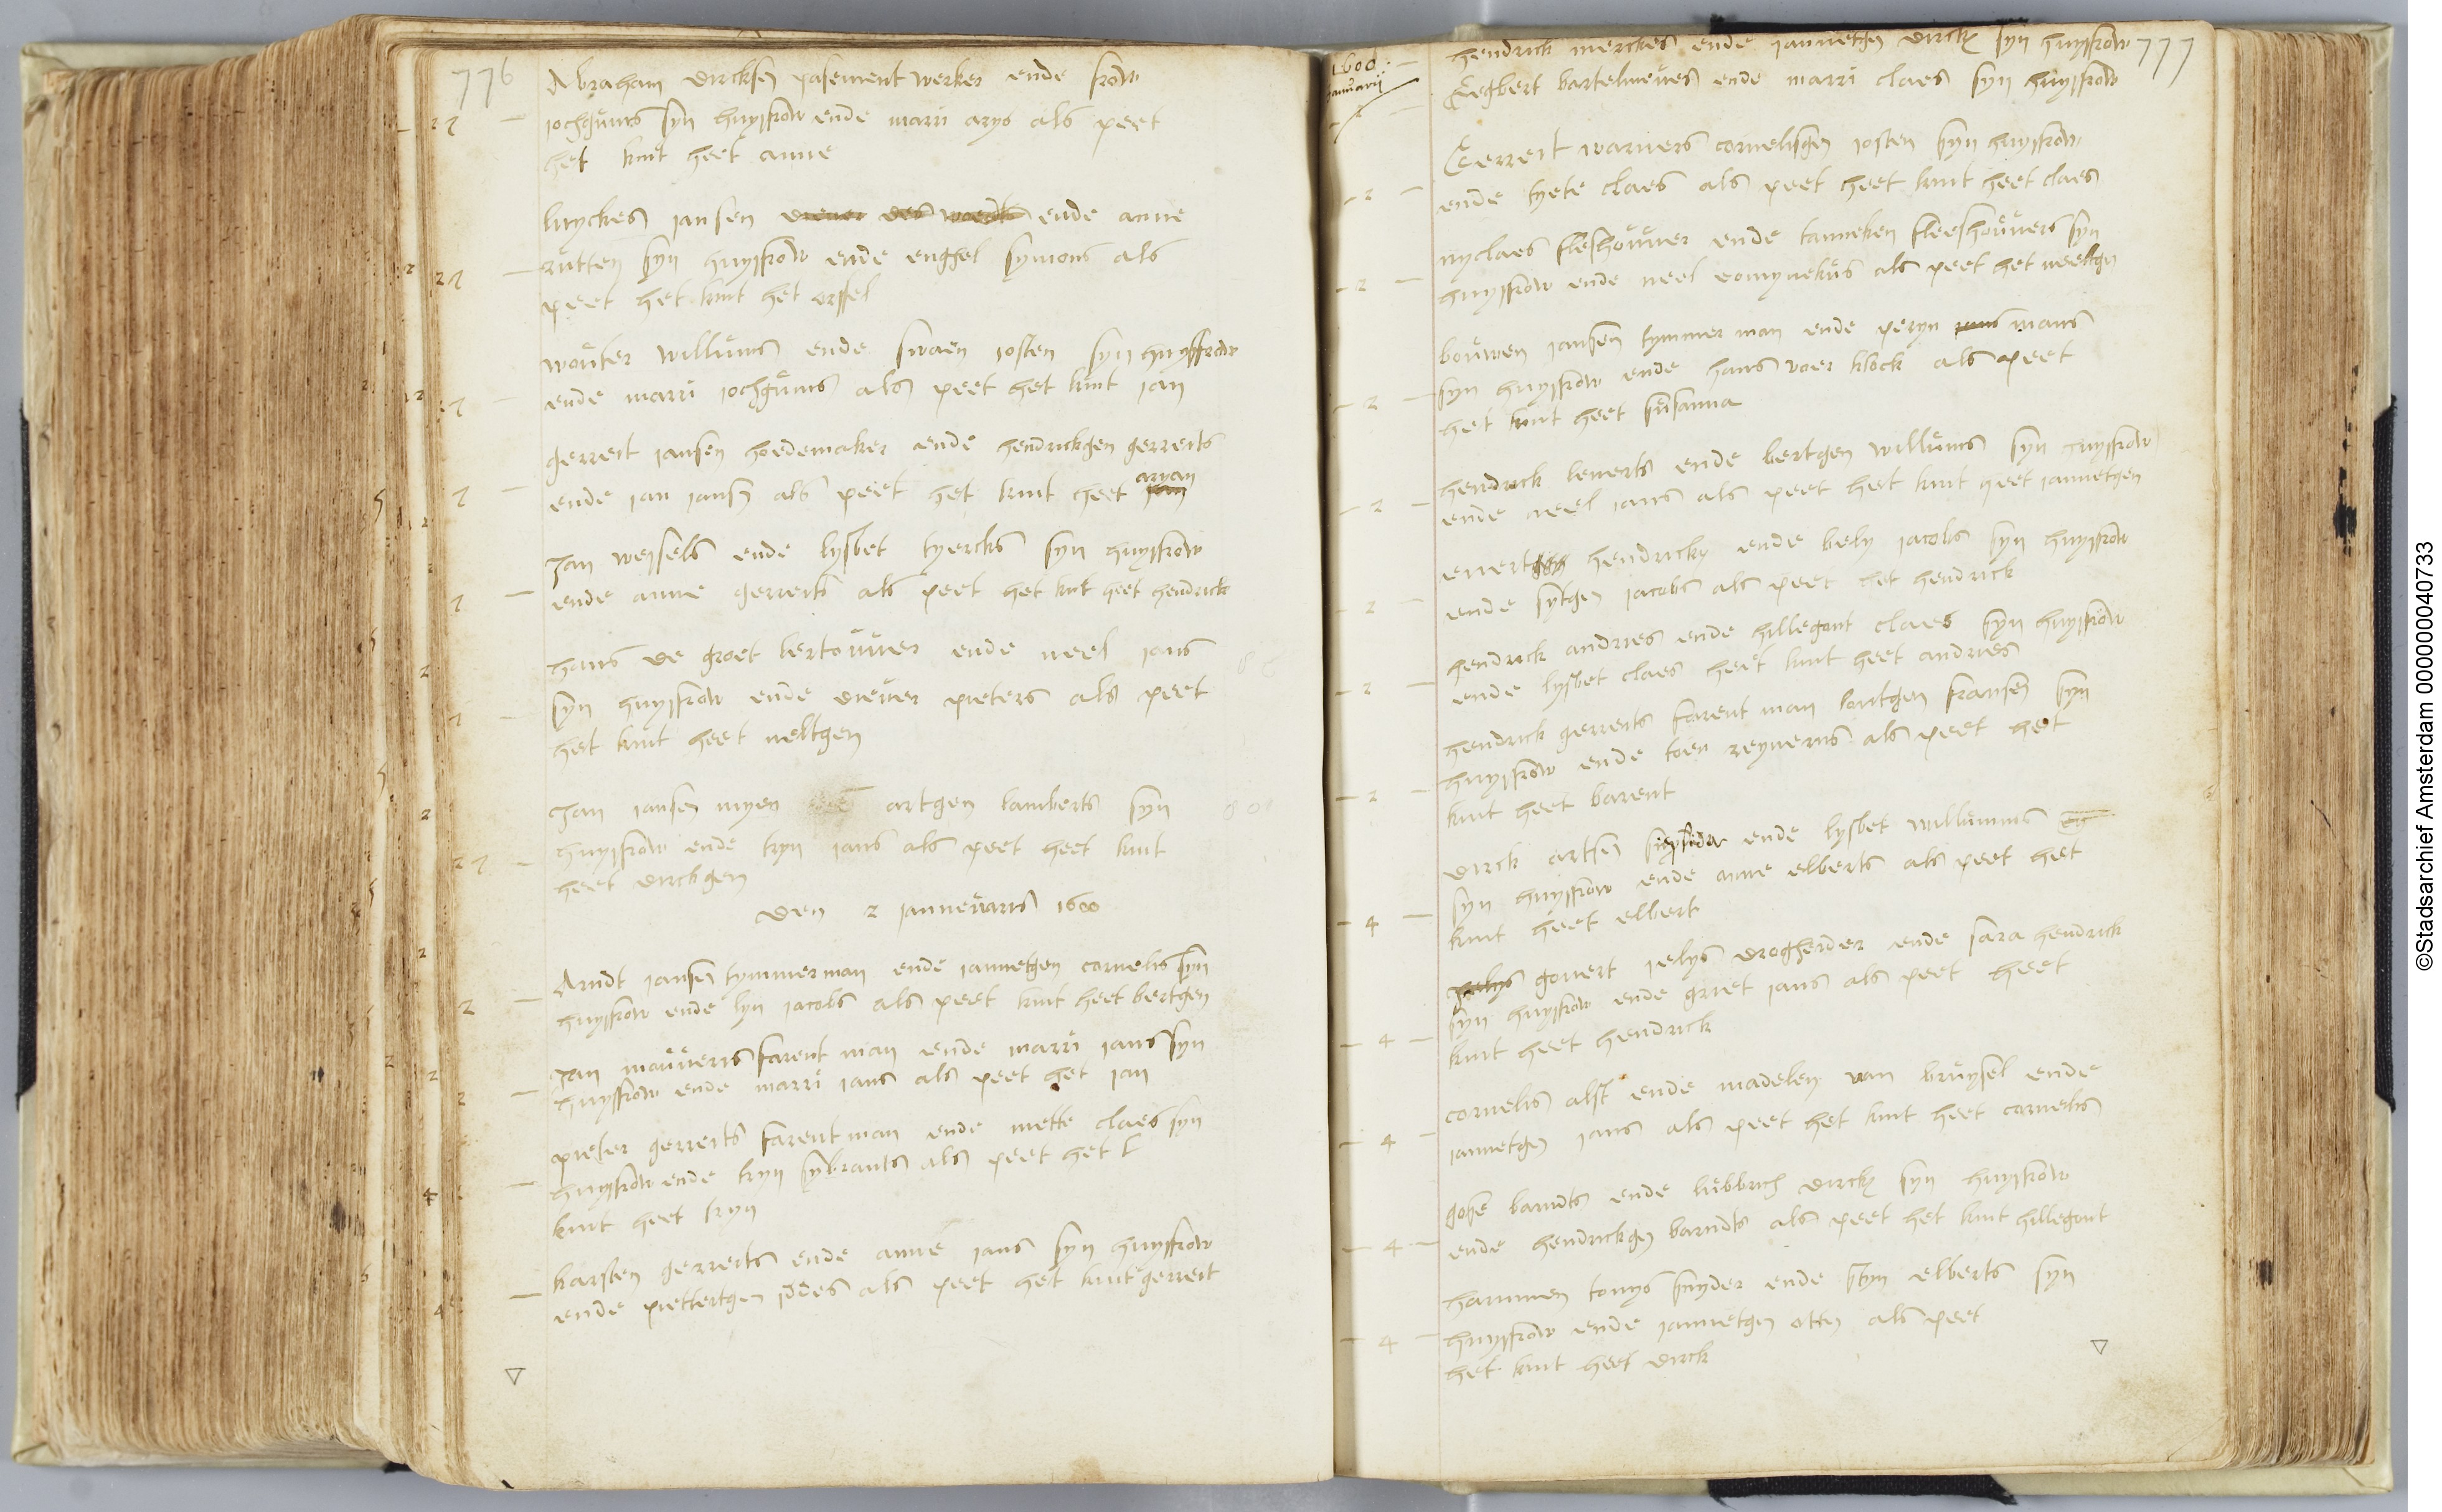 776
Abraham dircksen pasement werker ende frow
27 — jochgüms syn huysfrow ende marri arys als peet
het kint heet anne
luyckes jansen diener des woerdts ende anne
27 — rutten syn huysfrow ende enghel symons als
peet het kint het orssel
wouter willums ende swaen josten syn huysfrow
7 — ende marri jochgums als peet het kint jan
gerreit jansen hoedemaker ende hendrickgen gerreits
aryan
7 — ende jan jansz als peet het kint heet jan
Jan wessels ende lysbet tyercks syn huysfrow
7 — ende anne gerreits als peet het kint heet hendrick
hans de groet lertouwer ende neel jans
7 — syn huysfrow ende diewer pieters als peet
het kint heet neltgen
Jan jansen artgen lamberts syn
27 — huysfrow ende tryn jans als peet heet kint
heet dirckgen
den 2 jannewaris 1600
Arndt jansen tymmerman ende jannetgen cornelis syn
2 — huysfrow ende lyn jacobs als peet kint heet bertgen
Jan farent man ende marri jans syn
2 — huysfrow ende marri jans als peet het jan
pieter gerreits farentman ende mette claes syn
— huysfrow ende tryn sybrants als peet het
kint heet tryn
karsten gerreits ende anne jans syn huysfrow
— ende piettertgen als peet het kint gerreit
1600
januarij
777
hendrick merckes ende jannetgen dircks syn huysfrow
Eegbert bartelmeues ende marri claes syn huysfrow
Gerreit warners cornelisgen josten syn huysfrow
— 2 — ende tyete claes als peet heet kint heet claes
nyclaes fleshouwer ende tanneken fleeshouwers syn
— 2 — huysfrow ende neel als peet het neeltgen
bouwen jansen tymmer man ende peryn jans mans
— 2 — syn huysfrow ende hans voer klock als peet
het kint heet susanna
hendrick leuerts ende bertgen willums syn huysfrow
— 2 — ende neel jans als peet het kint heet jannetgen
euert hendricks ende bely jacobs syn huysfrow
— 2 — ende sytgen jacobs als peet het hendrick
hendrick andries ende hillegont claes syn huysfrow
— 2 — ende lysbet claes heet kint heet andries
hendrick gerreits farent man fransen syn
— 2 — huysfrow ende toen reyners als peet het
kint heet barent
dirck artsen ende lysbet willumms
— 4 — syn huysfrow ende anne elberts als peet het
kint heet elbert
jelys gouert jelys drogherder ende sara hendrick
— 4 — syn huysfrow ende griet jans als peet heet
kint heet hendrick
cornelis alst ende madelen van bruysel ende
— 4 — jannetgen jans als peet het kint heet cornelis
barndts ende lubbrich dircks syn huysfrow
— 4 — ende hendrickgen barndts als peet het kint hillegont
harmmen tonys snyder ende styn elberts syn
— 4 — huysfrow ende jannetgen otten als peet
het kint heet dirck
©Stadsarchief Amsterdam 000000040733